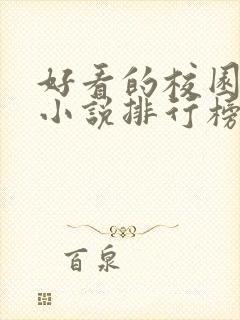 好看的校园
小说排行榜
百泉